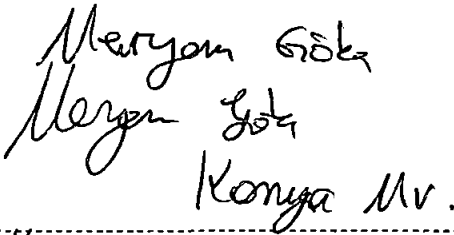 Meryem Göka
Meryem Göka
Konya Mv.